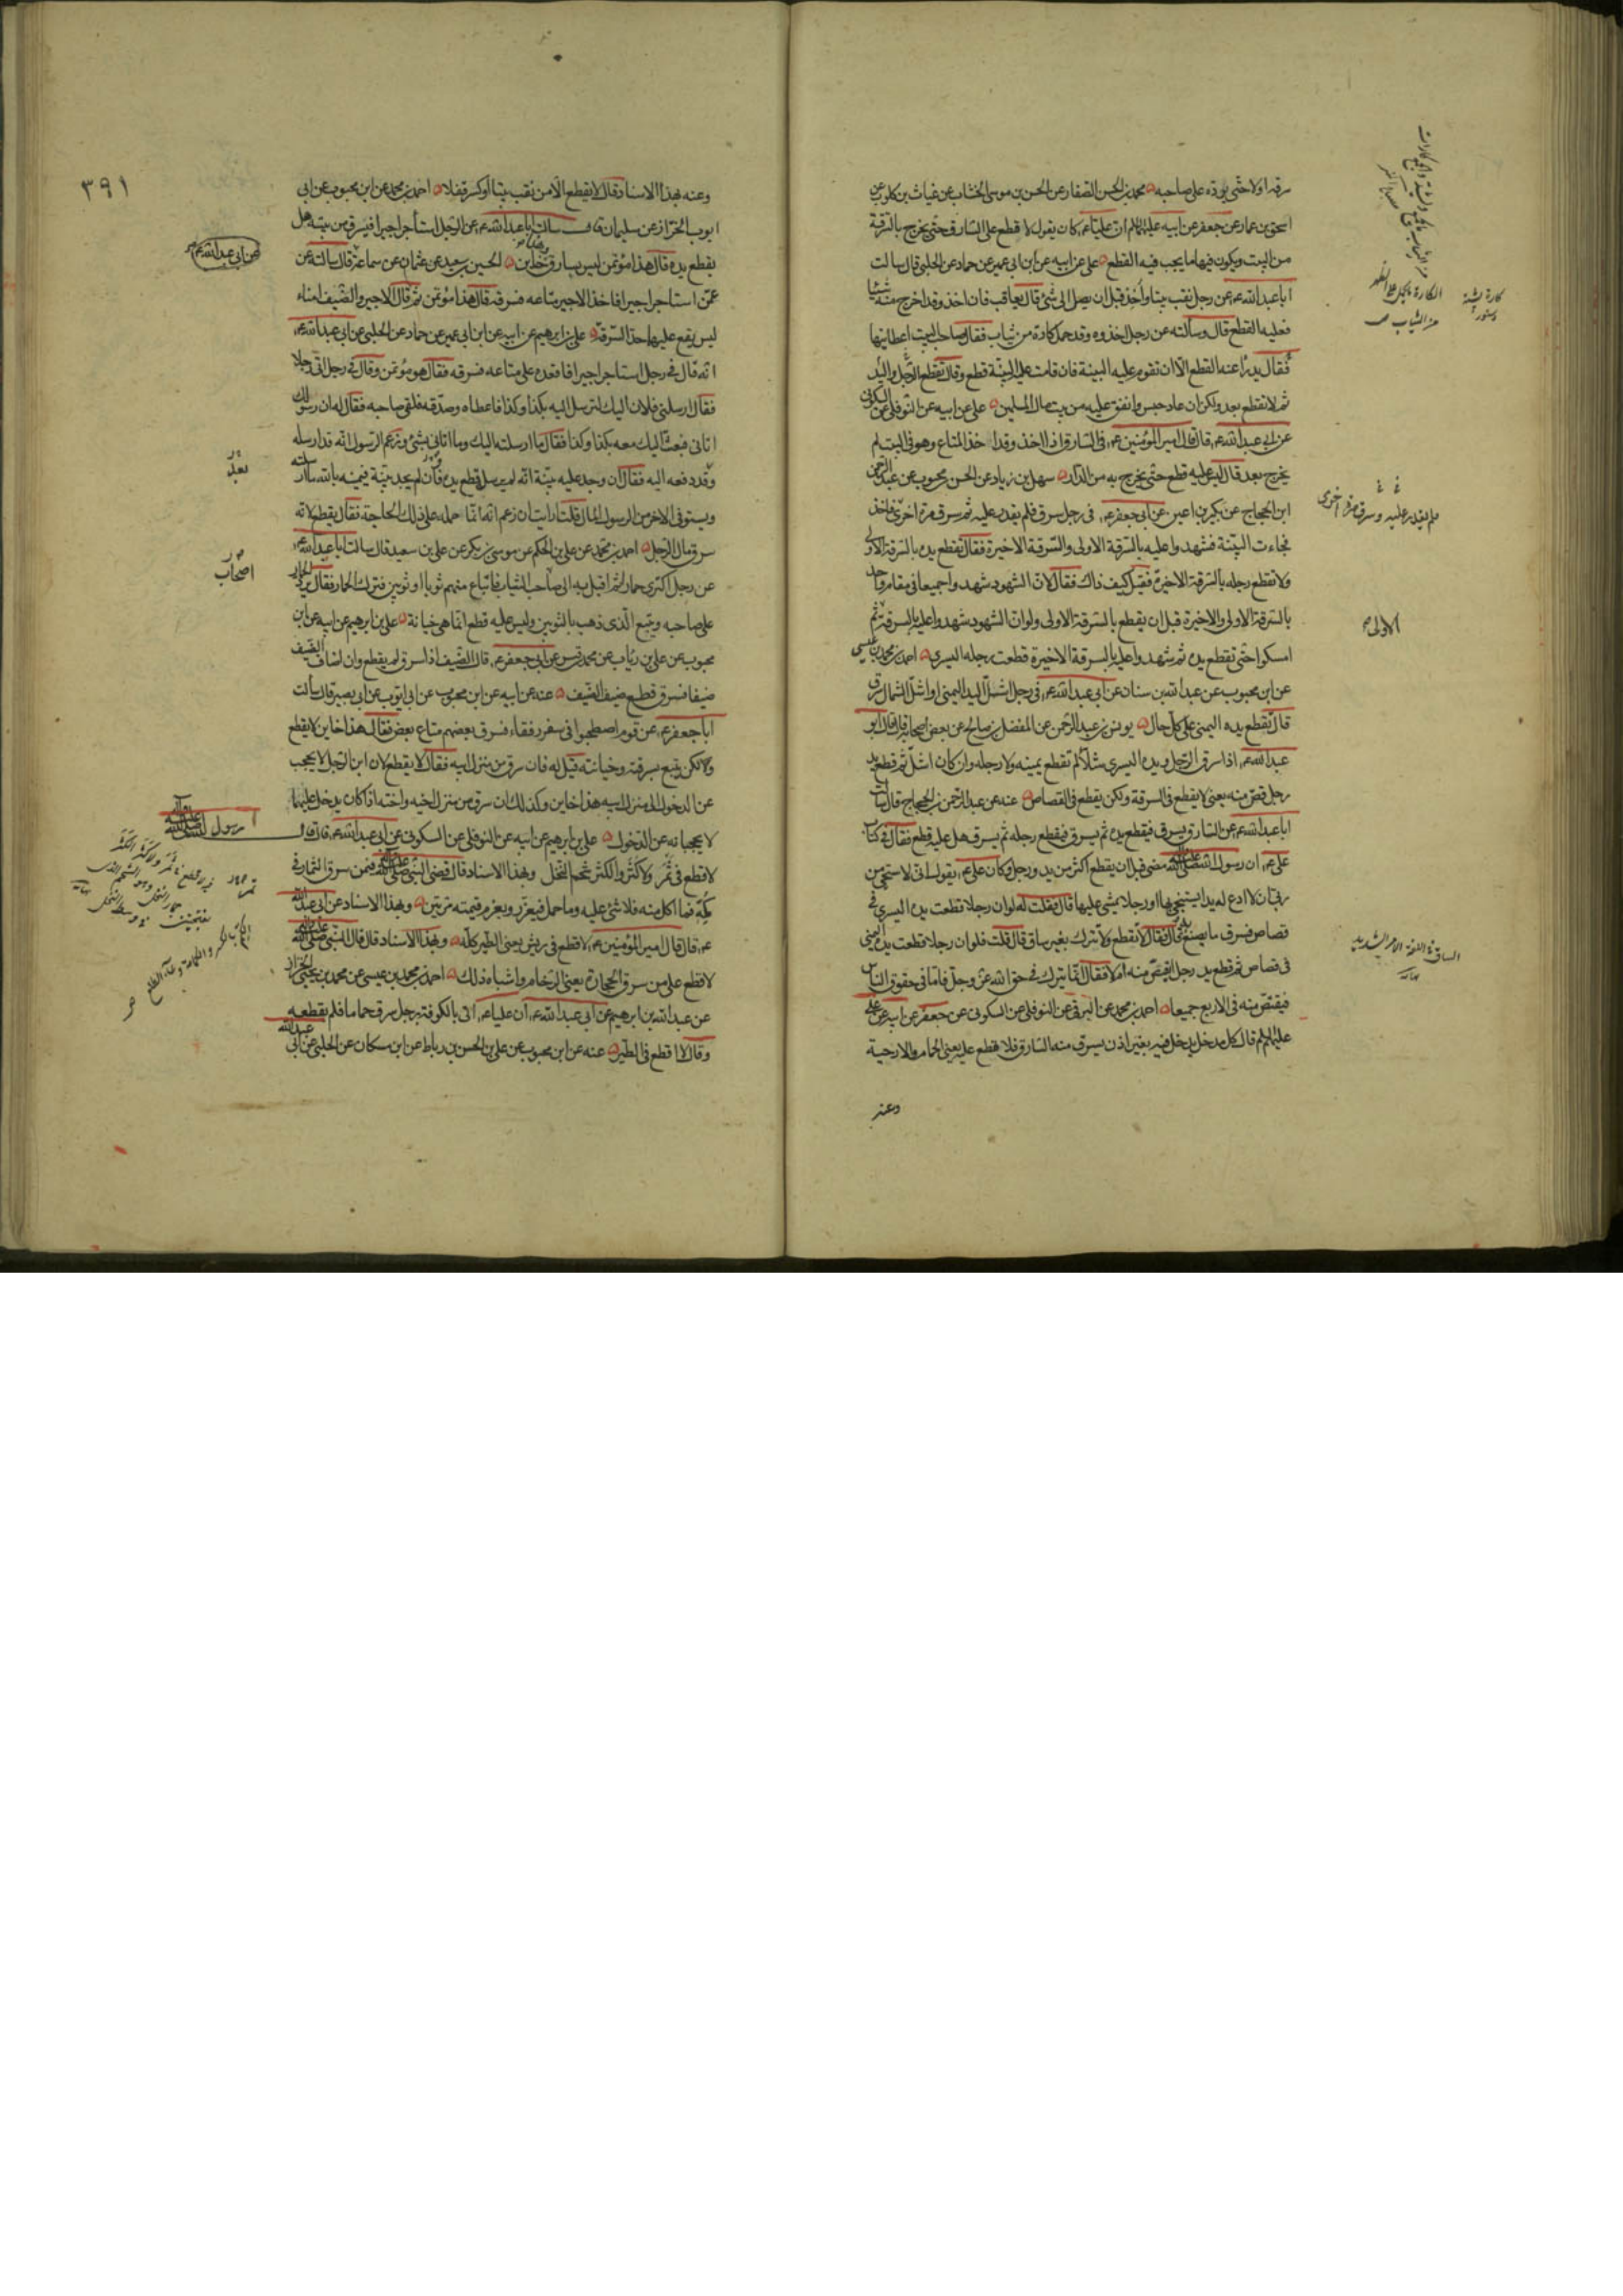 سرقه اولا حتى يرده على صاحبه محمد بن الحسن الصفار عن الحسن بن موسى الخشاب عن غياث بن كلوب عن
اسحق بن عمار عن جعفر عن ابيه عليه السلام ان عليا ع كان يقول لا قطع على السارق حتى يخرج بالسرقة
من البيت ويكون فيها ما يجب فيه القطع على عن ابيه عن ابن ابى عمير عن حماد عن الحلبى قال سالت
ابا عبد الله ع عن رجل نقب بيتا واخذ قبل ان يصل الى شئ قال يعاقب فان اخذ وقد اخرج منه شيئا
فعليه القطع قال وسالته عن رجل اخذوه وقد حمل كارة من ثياب فقال صاحب البيت اعطانيها
فقال يدرأ عنه القطع الا ان تقوم عليه البينة فان قامت عليه البينة قطع وقال تقطع الرجل واليد
ثم لا تقطع بعد ولكن ان عاد حبس وانفق عليه من بيت مال المسلمين على عن ابيه عن النوفلى عن السكونى
عن ابى عبد الله ع قال قال امير المؤمنين ع فى السارق اذا اخذ وقد اخذ المتاع وهو فى البيت لم
يخرج بعد قال ليس عليه قطع حتى يخرج به من الدار سهل بن زياد عن الحسن محبوب عن عبد الرحمن
ابن الحجاج عن بكير بن اعين عن ابى جعفر ع فى رجل سرق فلم يقدر عليه ثم سرق مرة اخرى فاخذ
فجاءت البينة فشهدوا عليه بالسرقة الاولى والسرقة الاخيرة فقال تقطع يده بالسرقة الاولى
ولا تقطع رجله بالسرقة الاخيرة فقيل كيف ذاك فقال لان الشهود شهدوا جميعا فى مقام واحد
بالسرقة الاولى والاخيرة قبل ان يقطع بالسرقة الاولى ولو ان الشهود شهدوا عليه بالسرقة ثم
امسكوا حتى تقطع يده ثم شهدوا عليه بالسرقة الاخيرة قطعت رجله اليسرى احمد بن محمد بن عيسى
عن ابن محبوب عن عبد الله بن سنان عن ابى عبد الله ع فى رجل اشل اليد اليمنى او اشل الشمال سرق
قال تقطع يده اليمنى على كل حال يونس بن عبد الرحمن عن المفضل بن صالح عن بعض اصحابه قال قال ابو
عبد الله ع اذا سرق الرجل ويده اليسرى شلاء لم تقطع يمينه ولا رجله وان كان اشل ثم قطع يد
رجل قص منه يعنى لا يقطع فى السرقة ولكن يقطع فى القصاص عنه عن عبد الرحمن بن الحجاج قال سالت
ابا عبد الله ع عن السارق يسرق فيقطع يده ثم يسرق فيقطع رجله ثم يسرق هل عليه قطع فقال فى كتاب
على ع ان رسول الله صلى الله عليه وآله مضى قبل ان يقطع اكثر من يد ورجل وكان على ع يقول انى لاستحيى من
ربى ان لا ادع له يدا يستنجى بها او رجلا يمشى عليها قال فقلت له لو ان رجلا قطعت يده اليسرى فى
قصاص فسرق ما يصنع به قال فقال لا تقطع ولا تترك بغير ساق قال قلت فلو ان رجلا قطعت يده اليمنى
فى قصاص ثم قطع يد رجل ايقتص منه ام لا فقال انما يترك فى حق الله عز وجل فاما فى حقوق الناس
فيقتص منه فى الاربع جميعا احمد بن محمد عن البرقى عن النوفلى عن السكونى عن جعفر عن ابيه عن على
عليهم السلام قال كل مدخل يدخل فيه بغير اذن يسرق منه السارق فلا قطع عليه يعنى الحمام والارحية
وعنه
الكارة ما يحمل على الظهر
من الثياب ص
فلم يقدر عليه وسرق مرة اخرى
الاولى
الساق فى اللغة الامر الشديد
نهاية
٣٩١
وعنه بهذا الاسناد قال لا يقطع الا من نقب بيتا او كسر قفلا احمد بن محمد عن ابن محبوب عن ابى
ايوب الخزاز عن سليمان قال سالت ابا عبد الله ع عن الرجل استأجر اجيرا فيسرق من بيته هل
يقطع يده قال هذا مؤتمن ليس بسارق هذا خاين الحسين بن سعيد عن عثمان عن سماعة قال سالته عن
عمن استاجر اجيرا فاخذ الاجير متاعه فسرقه قال هذا مؤتمن ثم قال الاجير والضيف امناء
ليس يقع عليهما حد السرقة على بن ابرهيم عن ابيه عن ابن ابى عمير عن حماد عن الحلبى عن ابى عبد الله ع
انه قال فى رجل استاجر اجيرا فاقعده على متاعه فسرقه فقال هو مؤتمن وقال فى رجل اتى رجلا
فقال ارسلنى فلان اليك لترسل اليه بكذا وكذا فاعطاه وصدقه فلقى صاحبه فقال له ان رسولك
اتانى فبعثت اليك معه بكذا وكذا فقال ما ارسلته اليك وما اتانى بشئ وزعم الرسول انه قد ارسله
وقد دفعه اليه فقال ان وجد عليه بينة انه لم يرسله قطع يده وان لم يجد بينة فيمينه بالله ما ارسلته
ويستوفى الاخر من الرسول المال قلت ارايت ان زعم انه انما حمله على ذلك الحاجة فقال يقطع لانه
سرق مال الرجل احمد بن محمد عن على بن الحكم عن موسى بن بكر عن على بن سعيد قال سالت ابا عبد الله ع
عن رجل اكترى حمارا ثم اقبل به الى صاحب الثياب فابتاع منهم ثوبا او ثوبين فترك الحمار فقال يرد الحمار
على صاحبه ويتبع الذى ذهب بالثوبين وليس عليه قطع انما هى خيانة على بن ابرهيم عن ابيه عن ابن
محبوب عن على بن رئاب عن محمد بن قيس عن ابى جعفر ع قال الضيف اذا سرق لم يقطع وان اضاف الضيف
ضيفا فسرق قطع ضيف الضيف عنه عن ابيه عن ابن محبوب عن ابى ايوب عن ابى بصير قال سالت
ابا جعفر ع عن قوم اصطحبوا فى سفر رفقاء فسرق بعضهم متاع بعض فقال هذا خاين لا يقطع
ولكن يتبع بسرقته وخيانته قيل له فان سرق من منزل ابيه فقال لا يقطع لان ابن الرجل لا يحجب
عن الدخول الى منزل ابيه هذا خاين وكذلك ان سرق من منزل اخيه واخته اذا كان يدخل عليهما
لا يحجبانه عن الدخول على بن ابرهيم عن ابيه عن النوفلى عن السكونى عن ابى عبد الله ع قال قال
لا قطع فى ثمر ولا كثر والكثر شحم النخل وبهذا الاسناد قال قضى النبى صلى الله عليه وآله فيمن سرق الثمار فى
كمه فما اكل منه فلا شئ عليه وما حمل فيعزر ويغرم قيمته مرتين وبهذا الاسناد عن ابى عبد الله
ع قال قال امير المؤمنين ع لا قطع فى ريش يعنى الطير كله وبهذا الاسناد قال قال النبى صلى الله عليه وآله
لا قطع على من سرق الحجارة يعنى الرخام واشباه ذلك احمد بن محمد بن عيسى عن محمد بن يحيى الخزاز
عن عبد الله بن ابرهيم عن ابى عبد الله ع ان عليا ع اتى بالكوفة برجل سرق حماما فلم يقطعه
وقال لا اقطع فى الطير عنه عن ابن محبوب عن على بن الحسن بن رباط عن ابن مسكان عن الحلبى عن ابى عبد الله
عن ابى عبد الله ع
اصحاب
رسول الله صلى الله عليه وآله